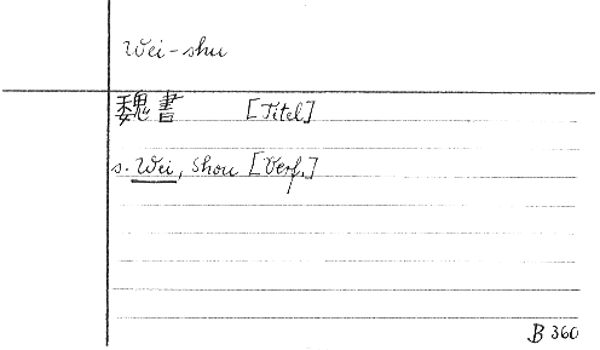 Wei-shu
魏書 [Titel]
s. Wei, Shou [Verf.]
B 360